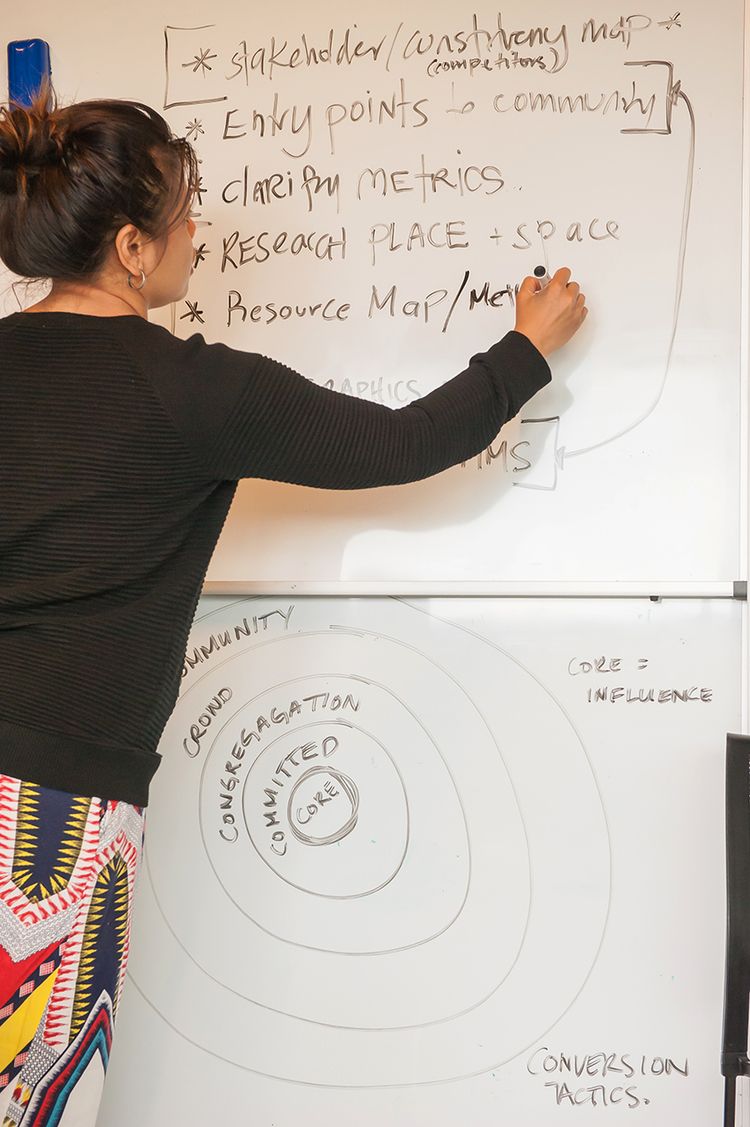 * stakeholder/constituency map *
(competitors)
* Entry points to community
* clarify METRICS..
* RESEARCH PLACE + space
* Resource Map/
COMMUNITY
CROWD
CONGREGAGATION
COMMITTED
CORE
CORE =
INFLUENCE
CONVERSION
TACTICS.